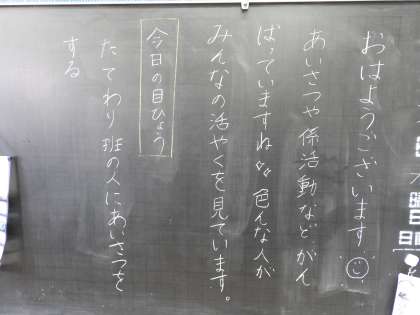 おはようございます
あいさつや係活動などがん
ばっていますね 色んな人が
みんなの活やくを見ています。
今日の目ひょう
たてわり班の人にあいさつを
する
曜日
日直